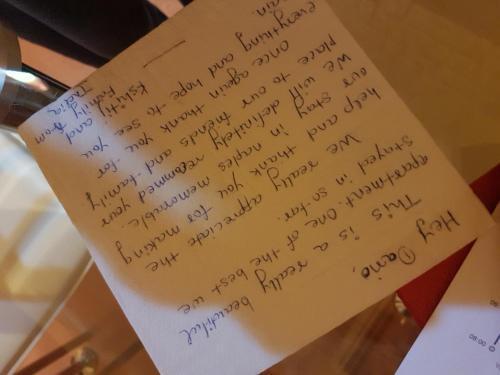 Hey Dario,
This is a really beautiful
apartment. One of the best we
stayed in so far.
We really appreciate the
help and thank you for making
our stay in naples memorable.
We will definitely recommed your
place to our friends and family
once again thank you for
everything and hope to see you
again.
Kshitij and
Family from
India